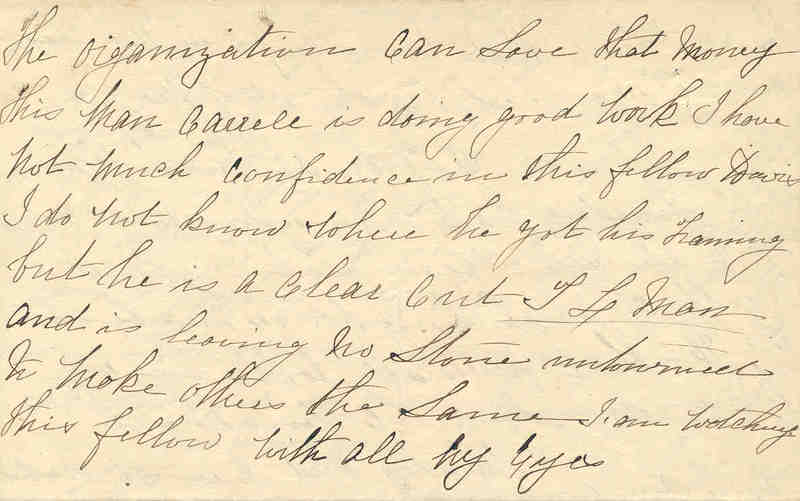 The organization can save that money
this man Carrell is doing good work I have
not much confidence in this fellow Davis
I do not know where he got his training
but he is a clear cut T L man
and is leaving no stone unturned
to make others the same I am watching
this fellow with all my eyes